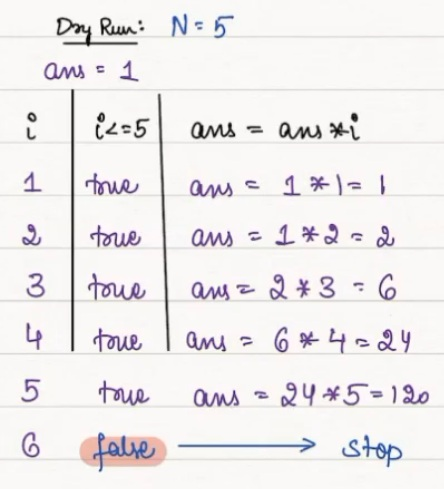 Dry Run: N = 5
ans = 1
i i<=5 ans = ans*i
1 true ans = 1 * 1 = 1
2 true ans = 1 * 2 = 2
3 true ans = 2 * 3 = 6
4 true ans = 6 * 4 = 24
5 true ans = 24 * 5 = 120
6 false → stop